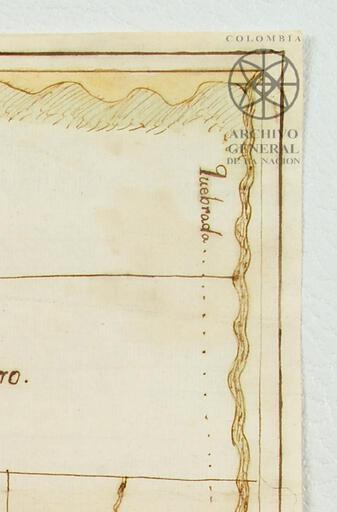 COLOMBIA
ARCHIVO
GENERAL
DE LA NACION
Quebrada
ro.